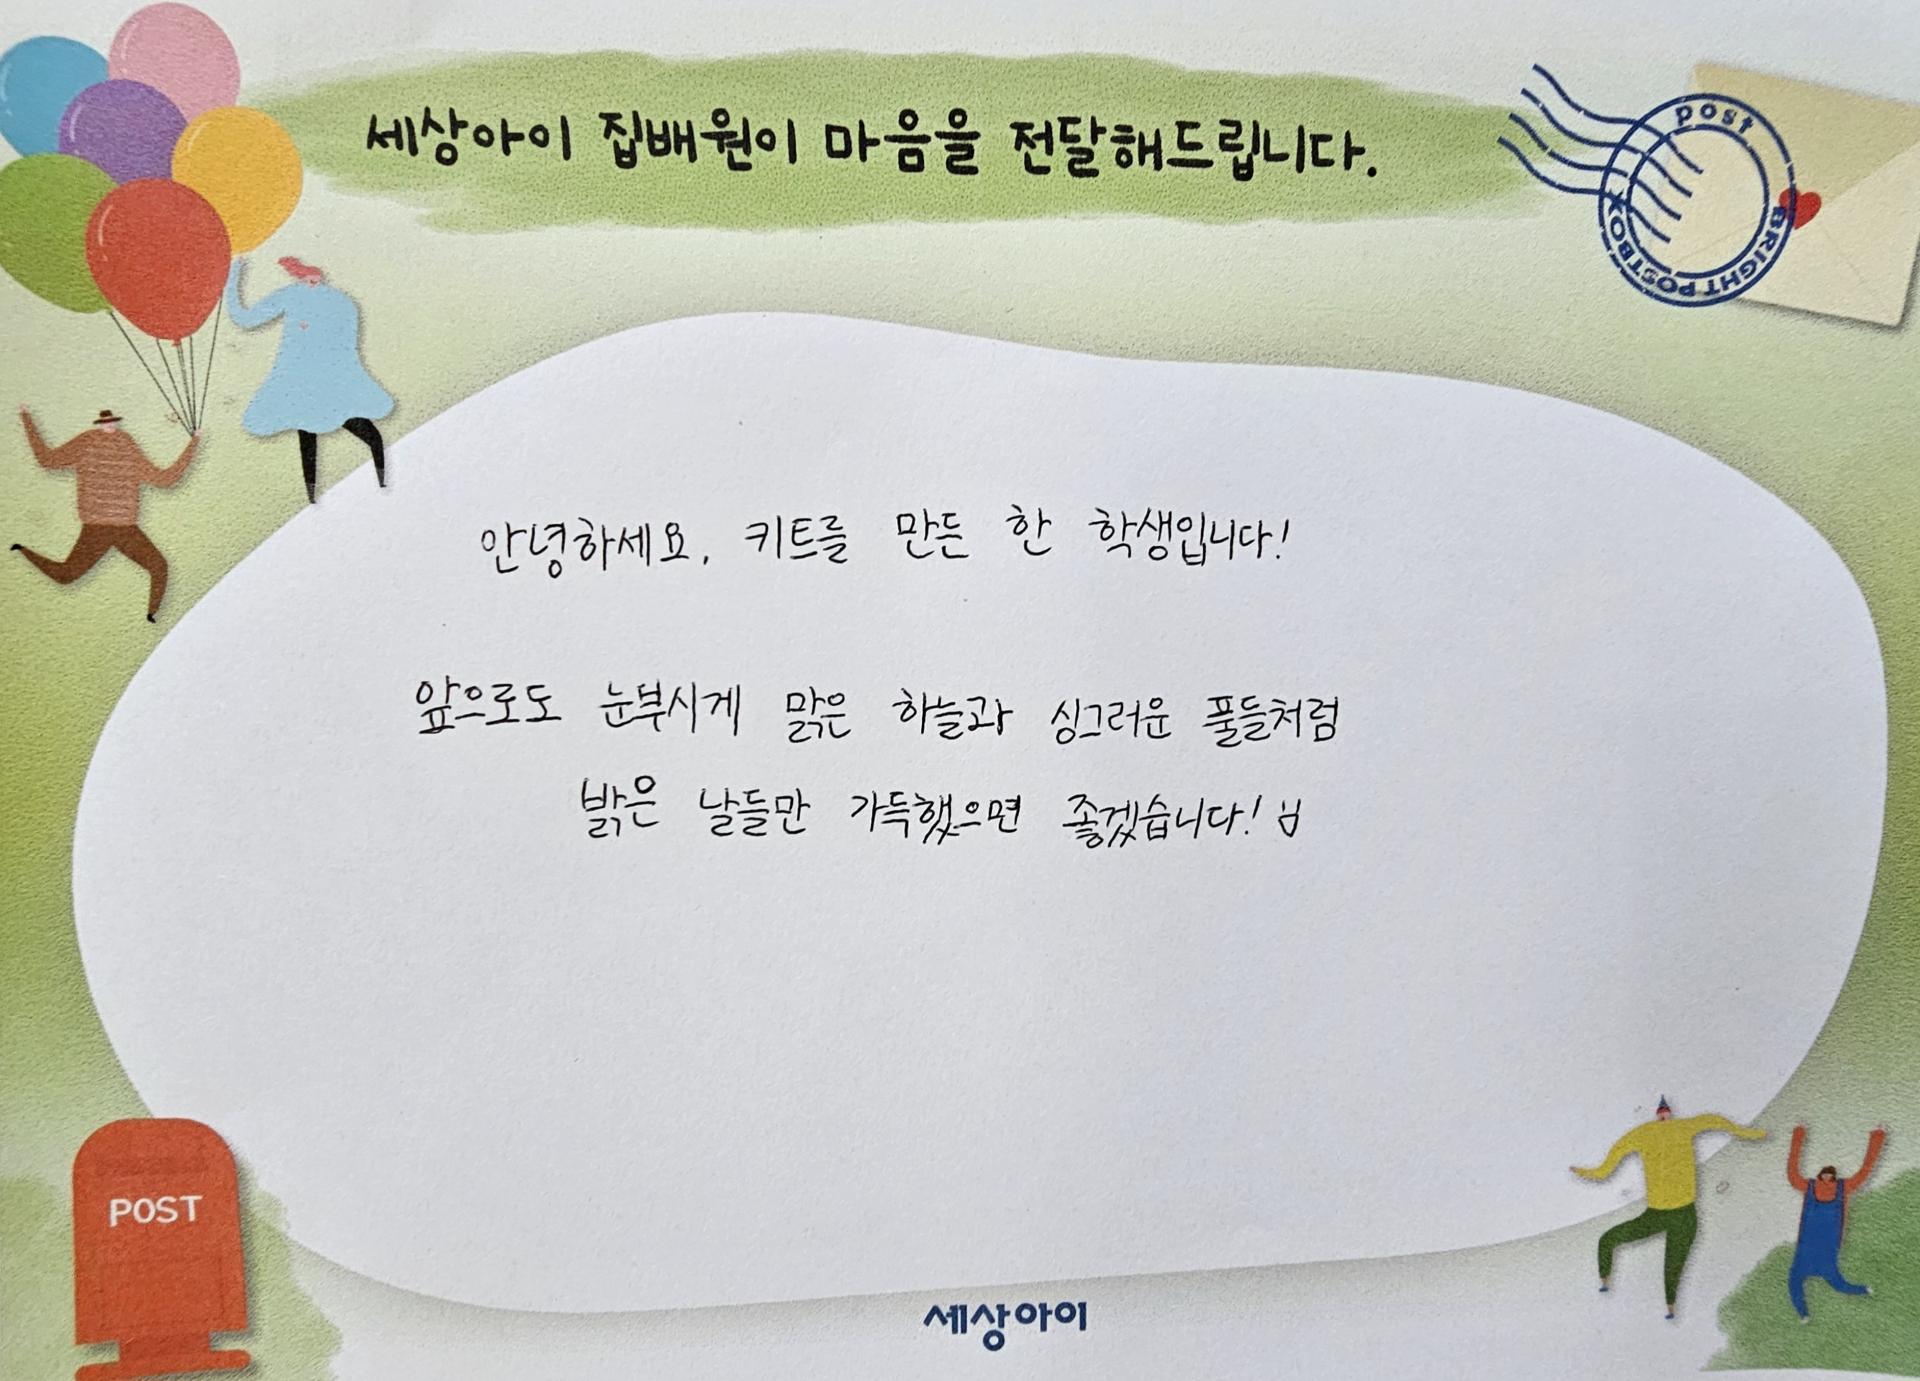 세상아이 집배원이 마음을 전달해드립니다.
post
BRIGHT POSTBOX
안녕하세요, 키트를 만든 한 학생입니다!
앞으로도 눈부시게 맑은 하늘과 싱그러운 풀들처럼
밝은 날들만 가득했으면 좋겠습니다!
POST
세상아이